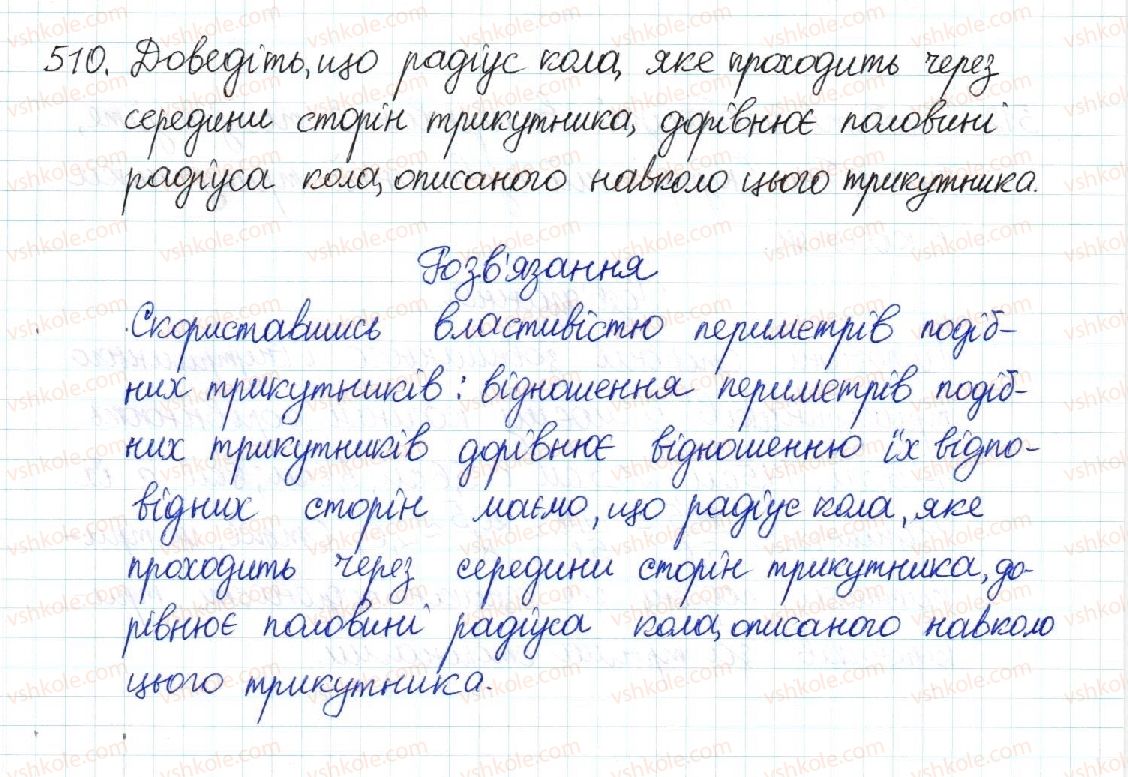 510. Доведіть, що радіус кола, яке проходить через
середини сторін трикутника, дорівнює половині
радіуса кола, описаного навколо цього трикутника.
Розв'язання
Скориставшись властивістю периметрів подіб-
них трикутників: відношення периметрів подіб-
них трикутників дорівнює відношенню їх відпо-
відних сторін маємо, що радіус кола, яке
проходить через середини сторін трикутника, до-
рівнює половині радіуса кола, описаного навколо
цього трикутника.